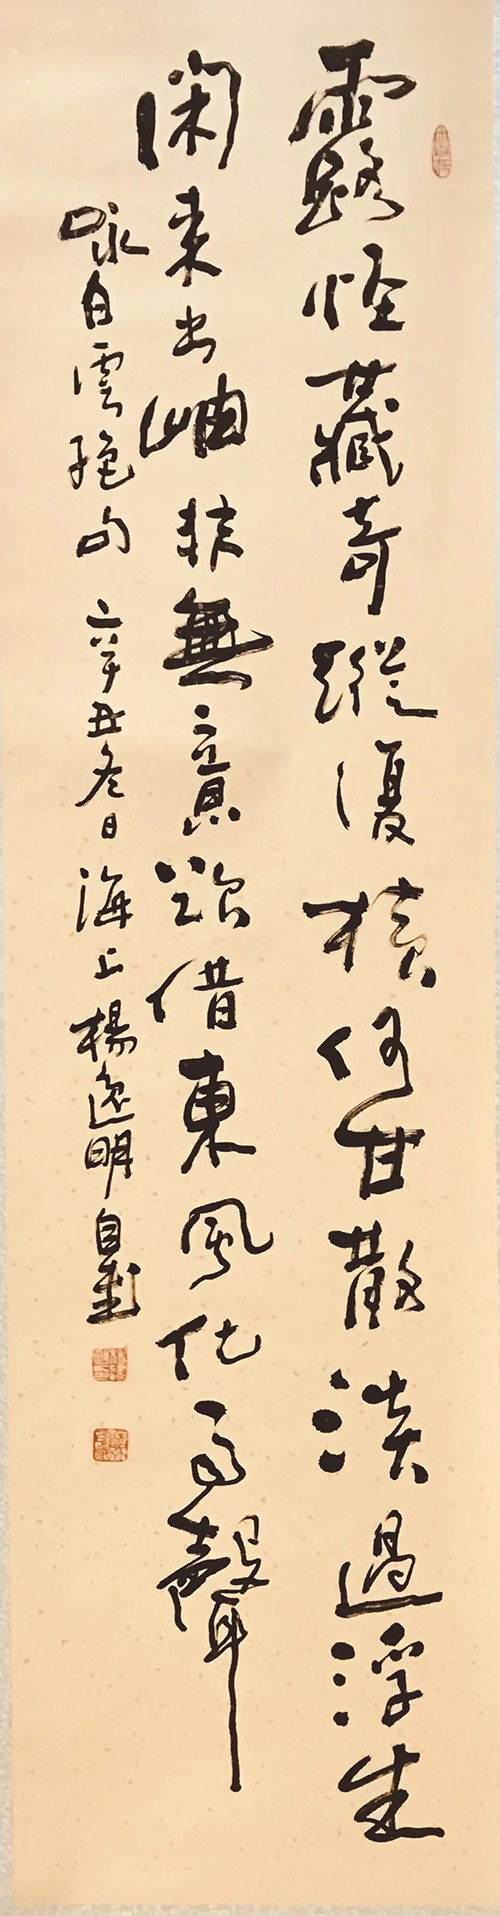 露怪藏奇蹤復橫何甘散淡過浮生
閑來出岫非無意願借東風化雨聲
咏白雲絶句 辛丑冬日 海上楊逸明自書